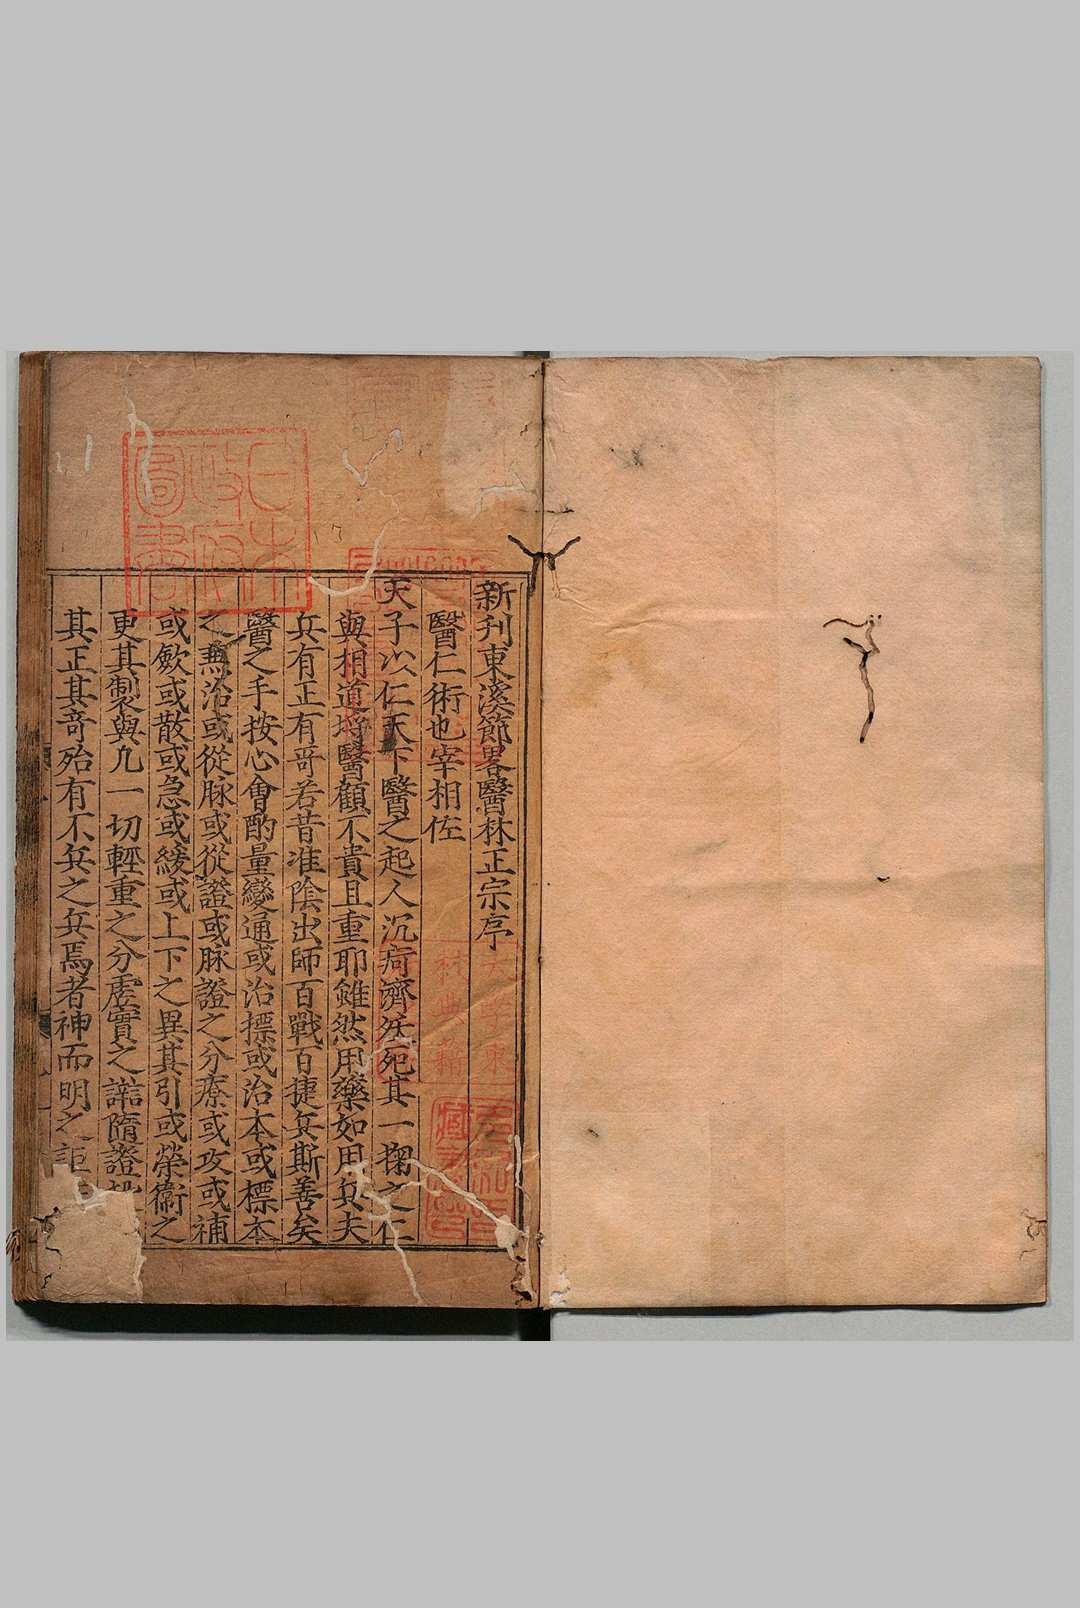 新刋東溪節畧醫林正宗序
醫仁術也宰相佐
天子以仁天下醫之起人沉疴濟殀死其一掬之仁
與相道埒醫顧不貴且重耶雖然用藥如用兵夫
兵有正有奇若昔淮陰出師百戰百捷兵斯善矣
醫之手按心會酌量變通或治標或治本或標本
之兼治或從脉或從證或脉證之分療或攻或補
或歛或散或急或緩或上下之異其引或榮衞之
更其製與凡一切輕重之分虛實之 隨證
其正其奇殆有不兵之兵焉者神而明之詎
日本
政府
圖書
大學東
校典籍